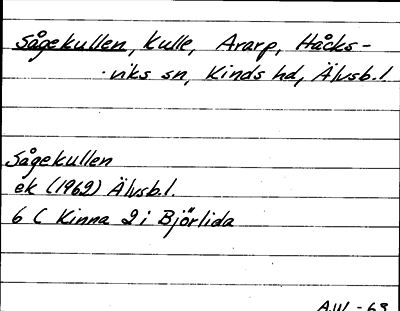 Sågekullen, Kulle, Ararp, Håcks-
viks sn, Kinds hd, Älvsb.l.
Sågekullen
ek (1962) Älvsb.l.
6 C Kinna 2 i Björlida
A.W -69